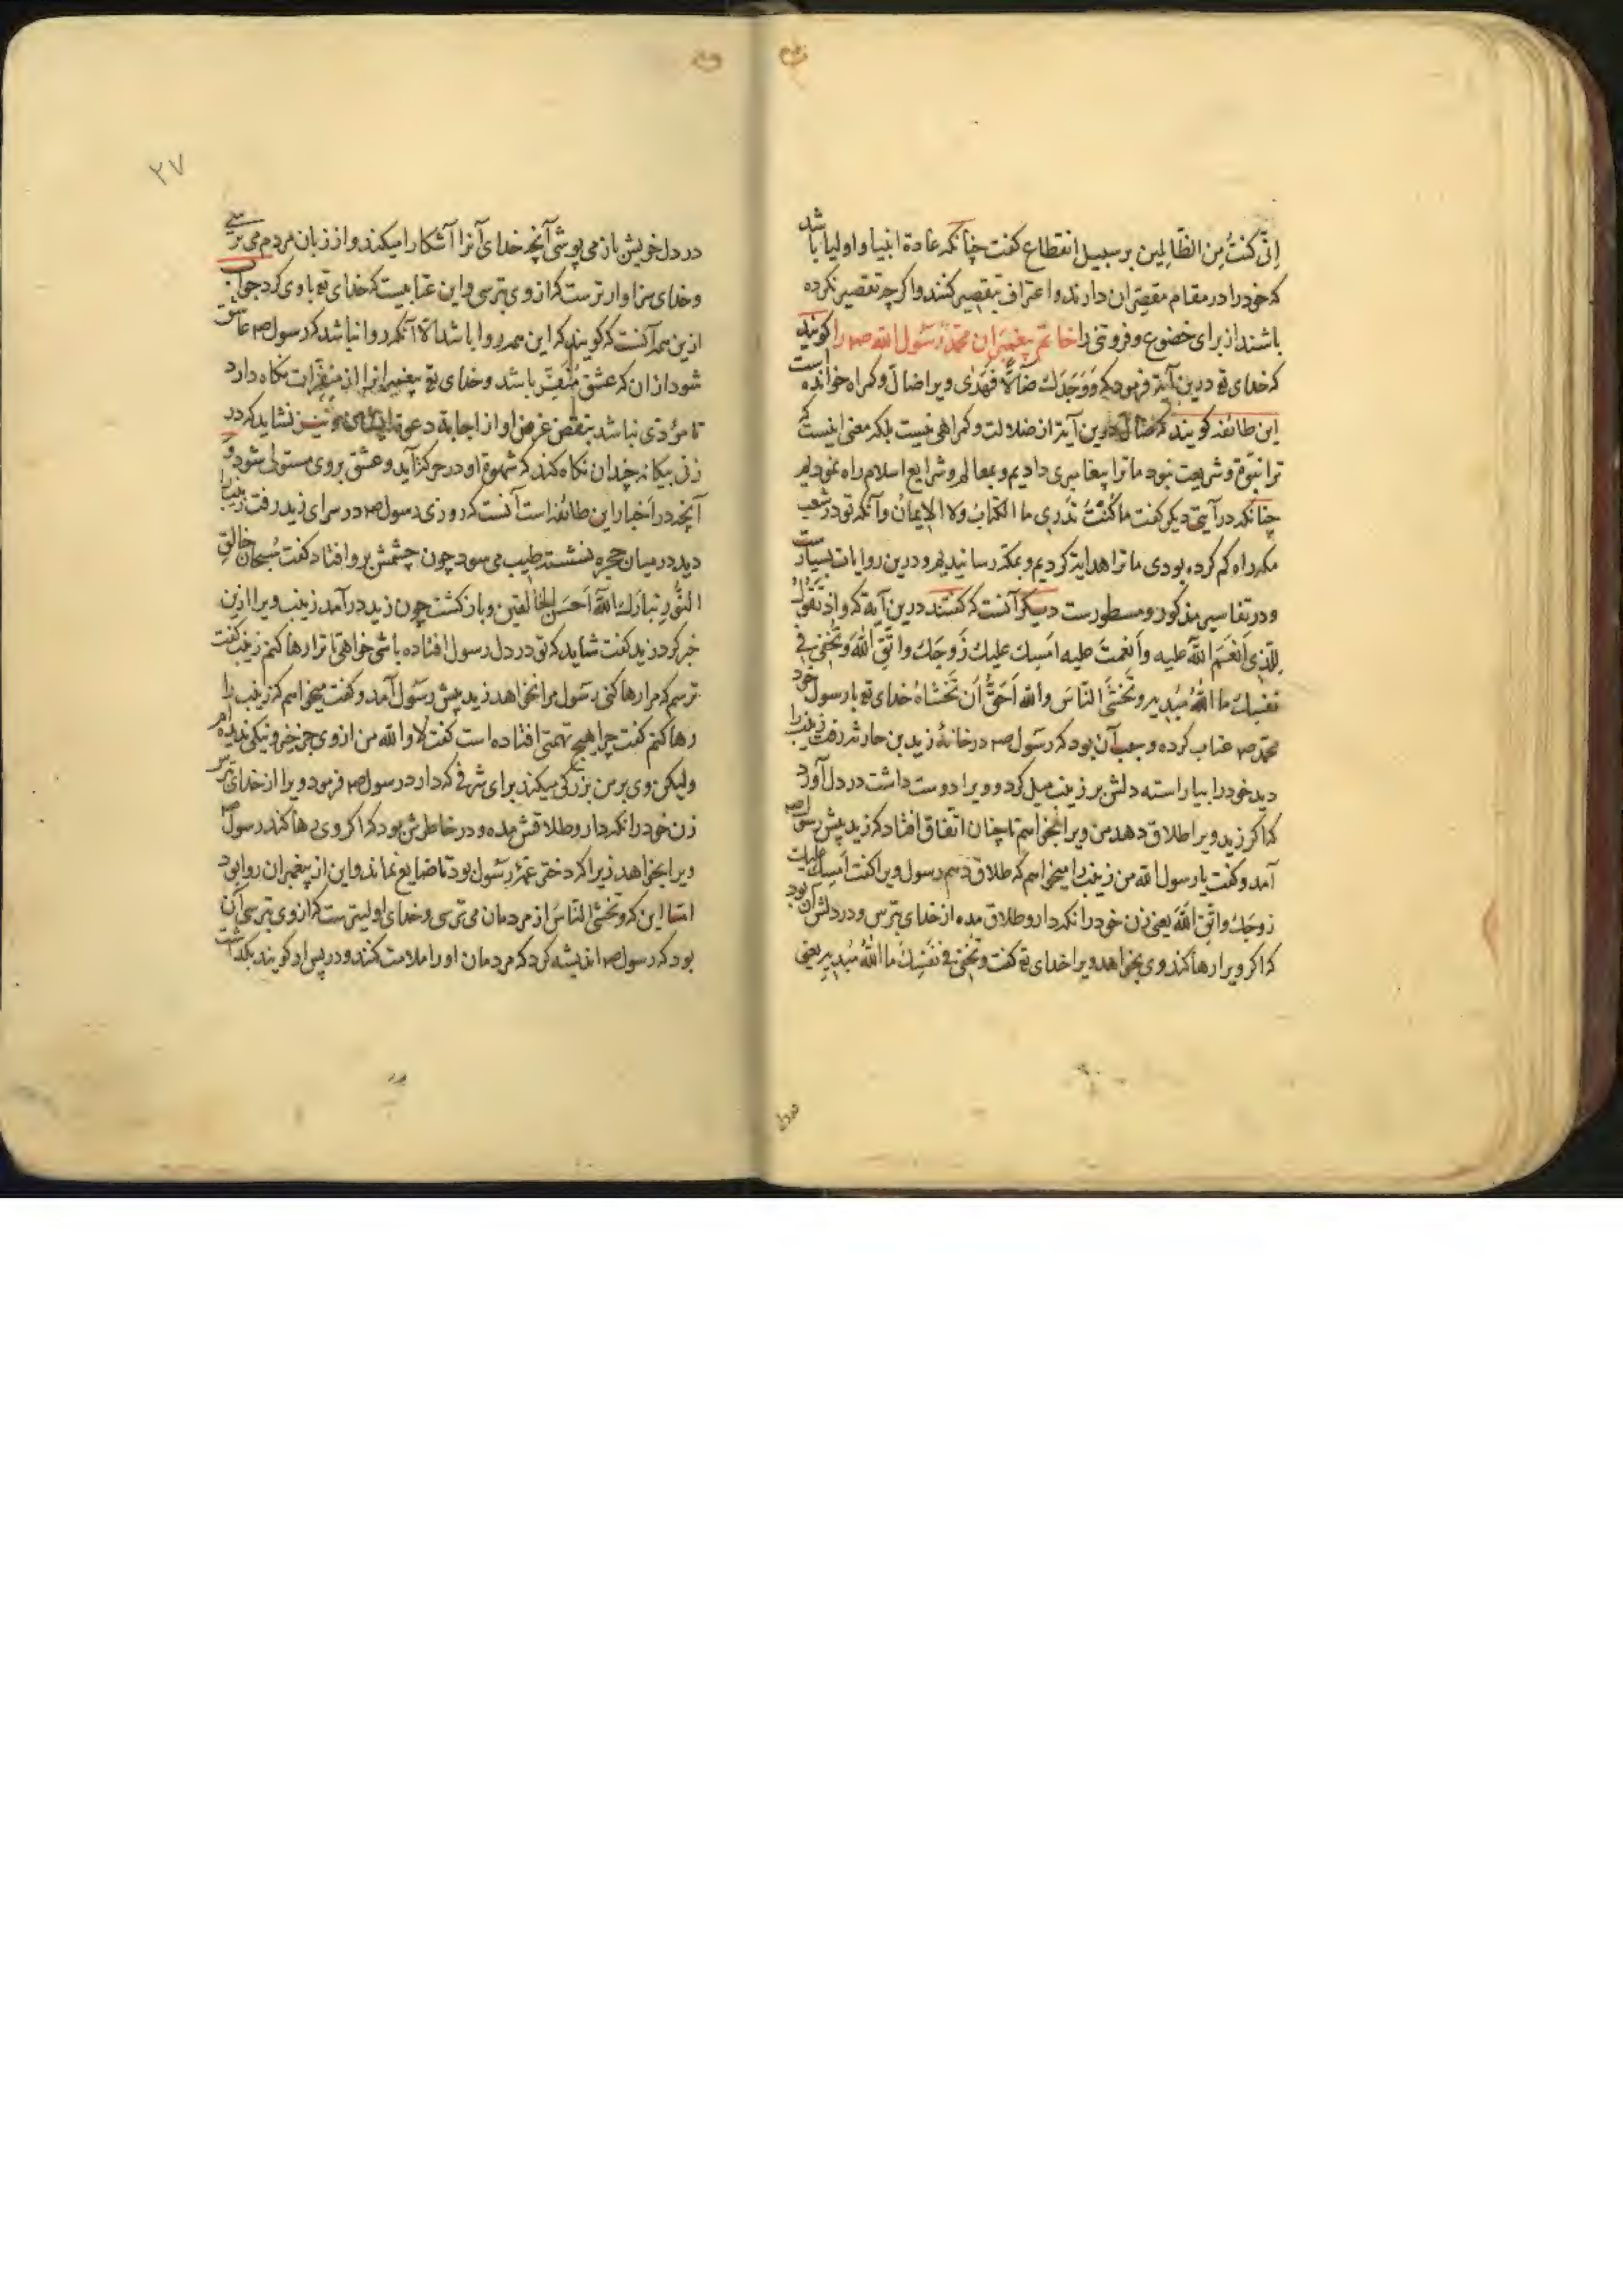 اِنّی کُنتُ مِنَ الظّالِمین بر سبیل انقطاع کفت چنانکه عادة انبیا و اولیا باشد
که خود را در مقام مقصّران دارند و اعتراف بتقصیر کنند و اکر چه تقصیر نکرده
باشند از برای خضوع و فروتنی را خاتم پیغمبران محمّد رسُول الله صم را کویند
که خدای تع درین آیة فرمود که وَوَجَدَكَ ضالّاً فَهَدٰی ویرا ضالّ و کمراه خوانده است
این طائفه کویند که ضالّ درین آیة از ضلالت و کمراهی نیست بلکه معنی اینست که
ترا نبوّة و شریعت نبود ما ترا پیغامبری دادیم و بمعالم و شرایع اسلام راه نمودیم
چنانکه در آیتی دیکر کفت ما کُنْتَ تَدْرِی ما الکتابُ وَلا الإیمانُ و آنکه تو در شعب
مکه راه کم کرده بودی ما ترا هدایة کردیم و بمکّه رسانیدیم و درین روایات بسیارست
و در تفاسیر مذکور و مسطورست دیکر آنست که کفتند درین آیة که و اذ تَقُولُ
لِلَّذِی اَنْعَمَ اللّٰه علیه وَاَنعمتَ علیه اَمسِك علیك زَوجَكَ واتّقِ اللّٰهَ وَتُخْفِی فی
نفسِكَ ما اللّٰهُ مُبدِیه وَتَخْشَی النّاسَ واللّٰه اَحَقُّ اَن تَخْشَاهُ خدای تع با رسول خود
محمّد صم عتاب کرده و سبب آن بود که رسول صم در خانۀ زید بن حارثه رفت زینب را
دید خود را بیاراسته دلش بر زینب میل کرد و ویرا دوست داشت در دل آورد
که اکر زید ویرا طلاق دهد من ویرا بخواهم تا چنان اتفاق افتاد که زید پیش رسول صم
آمد و کفت یا رسول الله من زینب را میخواهم که طلاق دهم رسول ویرا کفت اَمسِك علیك
زوجَكَ واتّقِ اللّٰهَ یعنی زن خود را نکه دار و طلاق مده از خدای بترس و در دلش آن بود
که اکر ویرا رها کند وی بخواهد ویرا خدای تع کفت وَتُخْفِی فی نَفْسِكَ ما اللّٰهُ مُبدِیه یعنی
در دل
۲۷
در دل خویش باز می پوشی آنچه خدای آنرا آشکارا میکند و از زبان مردم می ترسی
و خدای سزاوارترست که از وی بترسی و این عتابیست که خدای تع با وی کرد جواب
ازین همه آنست که کویند که این همه روا باشد الا آنکه روا نباشد که رسول صم عاشق
شود از آن که عشق مُنَفِّر باشد و خدای تع پیغمبرانرا از منفّرات نکاه دارد
تا مؤدّی نباشد بنقض غرض او از اجابة دعوة ایشان و نیز نشاید که در
زن بیکانه چندان نکاه کند که شهوة او در حرکة آید و عشق بر وی مستولی شود و
آنچه در اخبار این طائفه است آنست که روزی رسول صم در سرای زید رفت زینب را
دید در میان حجره نشسته طیب می سود چون چشمش برو افتاد کفت سُبحان خالقِ
النُّورِ تبارَكَ اللّٰهُ اَحسَن الخالقین و باز کشت چون زید درآمد زینب ویرا ازین
خبر کرد زید کفت شاید که تو در دل رسول افتاده باشی خواهی تا ترا رها کنم زینب کفت
ترسم که مرا رها کنی رسول مرا نخواهد زید پیش رسول آمد و کفت میخواهم که زینب را
رها کنم کفت چرا هیچ تهمتی افتاده است کفت لا والله من از وی جز خیر و نیکی ندیده ام
ولیکن وی بر من بزرکی میکند برای شرفی که دارد رسول صم فرمود ویرا از خدای بترس
زن خود را نکه دار و طلاقش مده و در خاطرش بود که اکر وی رها کند رسول صم
ویرا بخواهد زیرا که دختر عمّۀ رسول بود تا ضایع نماند و این از پیغمبران روا بود
امّا این که وتَخشی النّاسَ از مردمان می ترسی و خدای اولیترست که از وی بترسی آن
بود که رسول صم اندیشه کرد که مردمان او را ملامت کنند و در پس او کویند بکذاشت